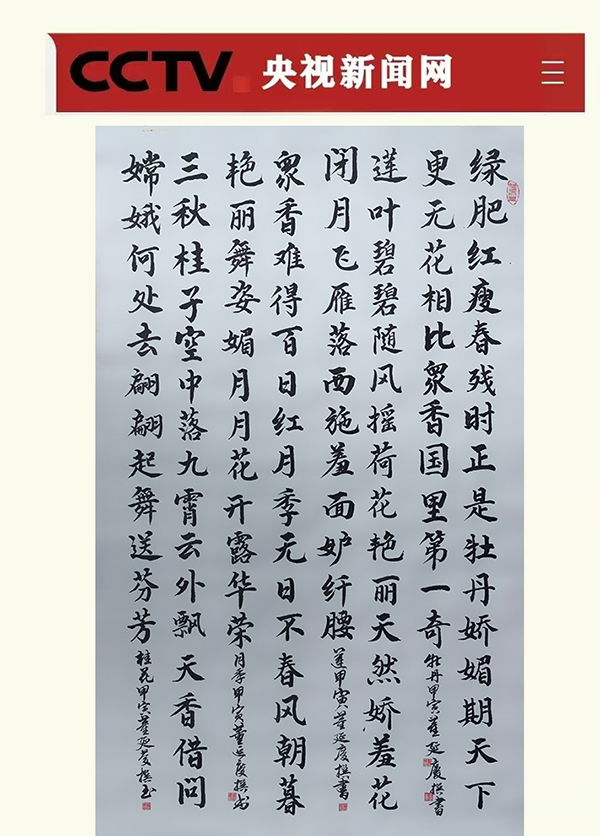 CCTV 央视新闻网
绿肥红瘦春残时正是牡丹娇媚期天下
更无花相比众香国里第一奇 牡丹甲寅董延庆撰书
莲叶碧碧随风摇荷花艳丽天然娇羞花
闭月飞雁落西施羞面妒纤腰 莲甲寅董延庆撰书
众香难得百日红月季无日不春风朝暮
艳丽舞姿媚月月花开露华荣 月季甲寅董延庆撰书
三秋桂子空中落九霄云外飘天香借问
嫦娥何处去翩翩起舞送芬芳 桂花甲寅董延庆撰书